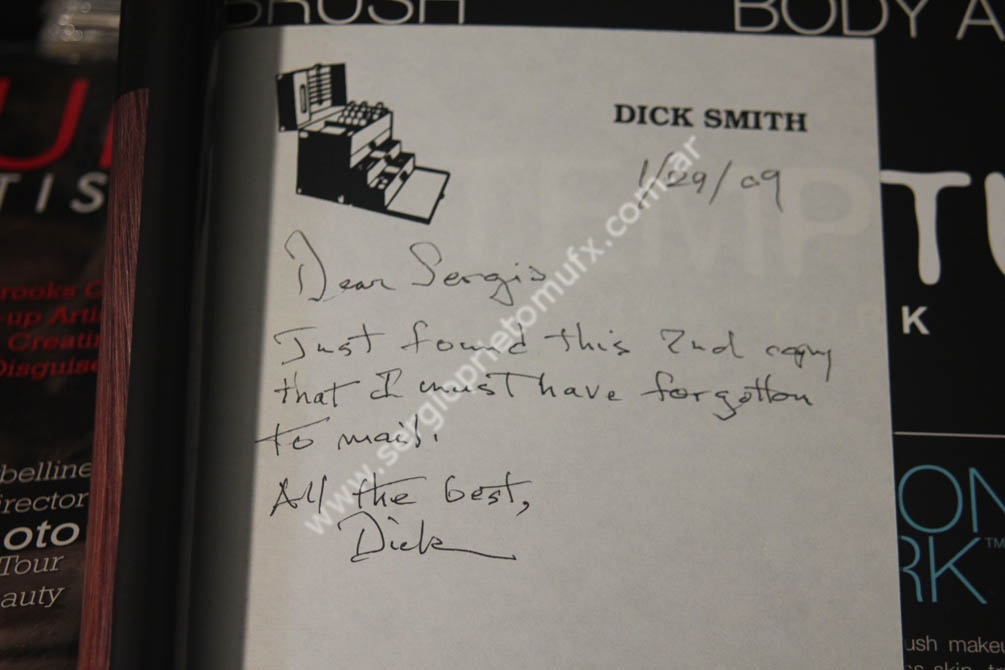 BRUSH
BODY A
DICK SMITH
1/29/09
Dear Sergio
Just found this 2nd copy
that I must have forgotten
to mail.
All the best,
Dick
www.sergioprietomufx.com.ar
TIS
rooks C
-up Arti
Creatin
Disguise
belline
irector
oto
Tour
auty
EMPTU
K
ON
RK™
ush make